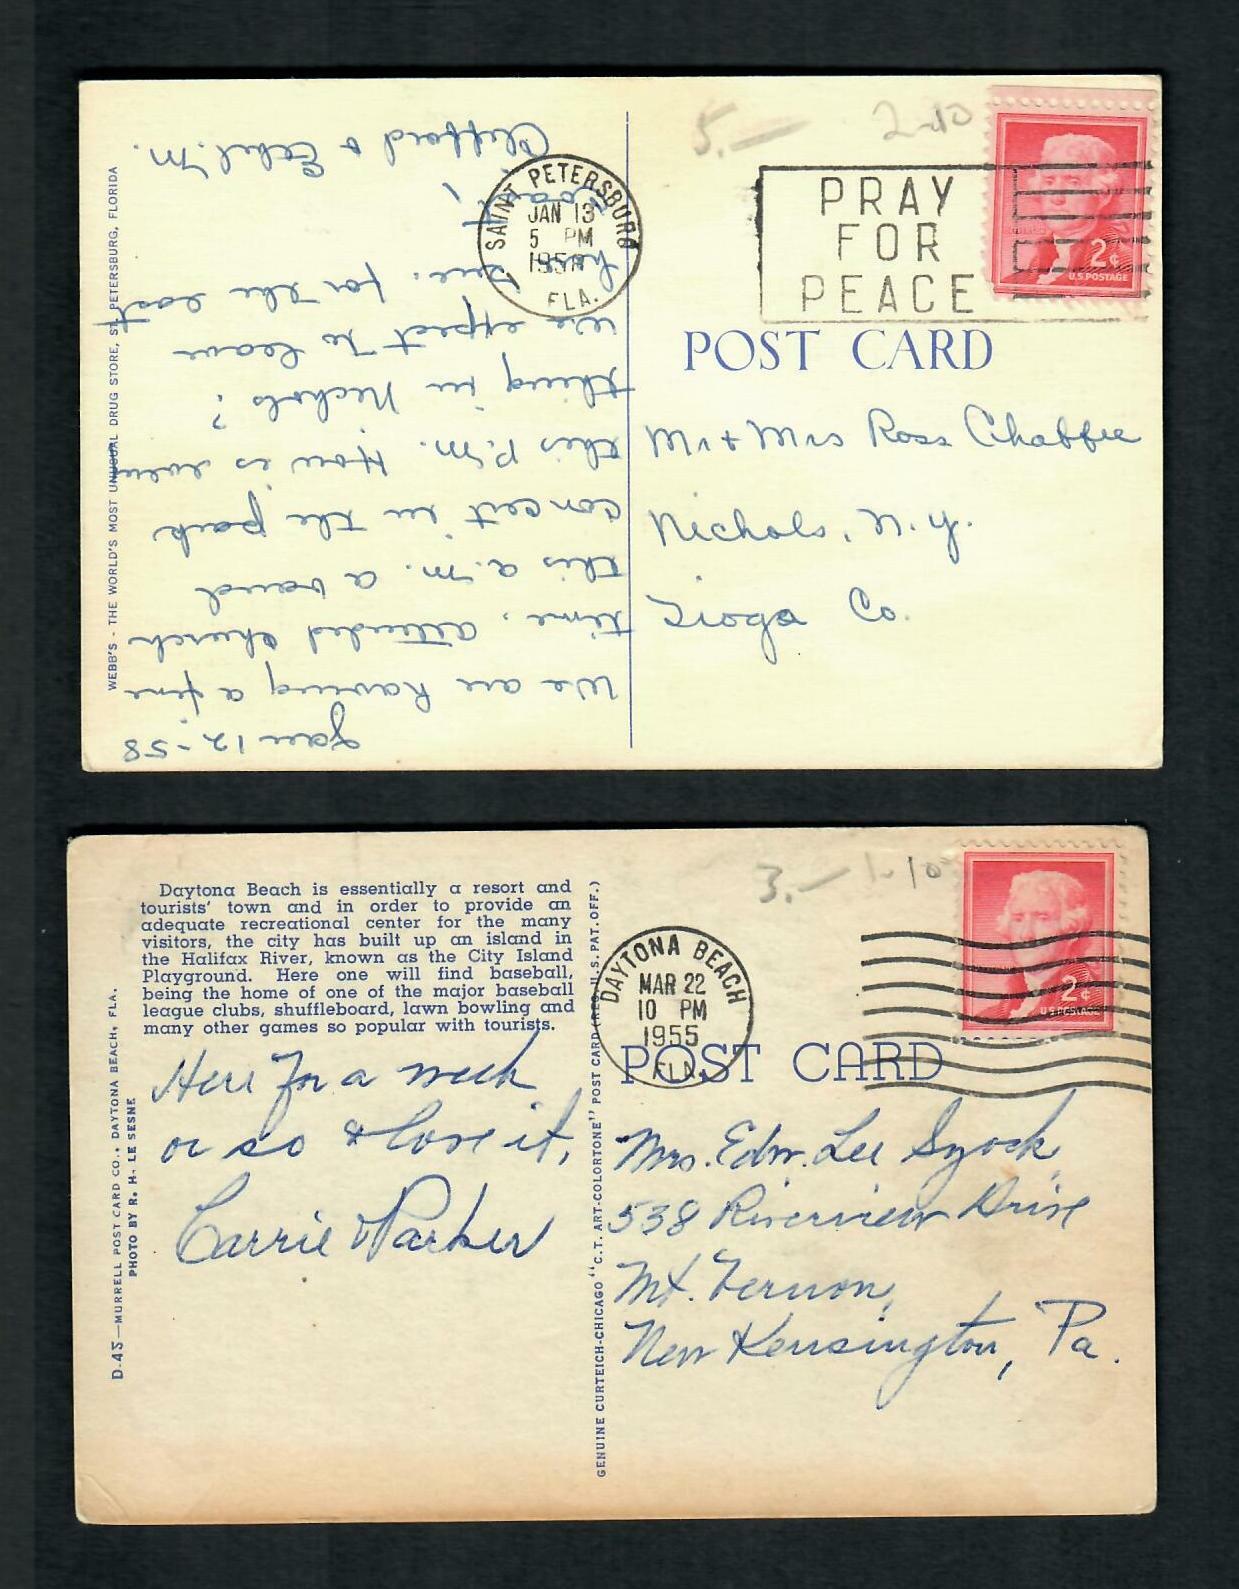 5.—
2-10
SAINT PETERSBURG
JAN 13
5 PM
FLA.
PRAY
FOR
PEACE
2¢
U.S. POSTAGE
POST CARD
Mr + Mrs Ross Chaffee
Nichols, N.Y.
Tioga Co.
Jan 12-58
We are having a fine
time, attended church
this a.m. a band
concert in the park
this P.M. How is every
thing in Nichols?
We expect to leave
here Tue. for the east
coast.
Clifford & Ethel. M.
WEBB'S - THE WORLD'S MOST UNUSUAL DRUG STORE, ST. PETERSBURG, FLORIDA
Daytona Beach is essentially a resort and
tourists' town and in order to provide an
adequate recreational center for the many
visitors, the city has built up an island in
the Halifax River, known as the City Island
Playground. Here one will find baseball,
being the home of one of the major baseball
league clubs, shuffleboard, lawn bowling and
many other games so popular with tourists.
Here for a week
or so & love it,
Carrie Parker
D-45—MURRELL POST CARD CO., DAYTONA BEACH, FLA.
PHOTO BY R. H. LE SESNE
GENUINE CURTEICH-CHICAGO "C.T. ART-COLORTONE" POST CARD (REG. U.S. PAT. OFF.)
3.—
1-10
DAYTONA BEACH
MAR 22
10 PM
1955
FLA.
2¢
U.S. POSTAGE
POST CARD
Mrs. Edw. Lee
538 Riverview Drive
Mt. Vernon,
New Kensington, Pa.